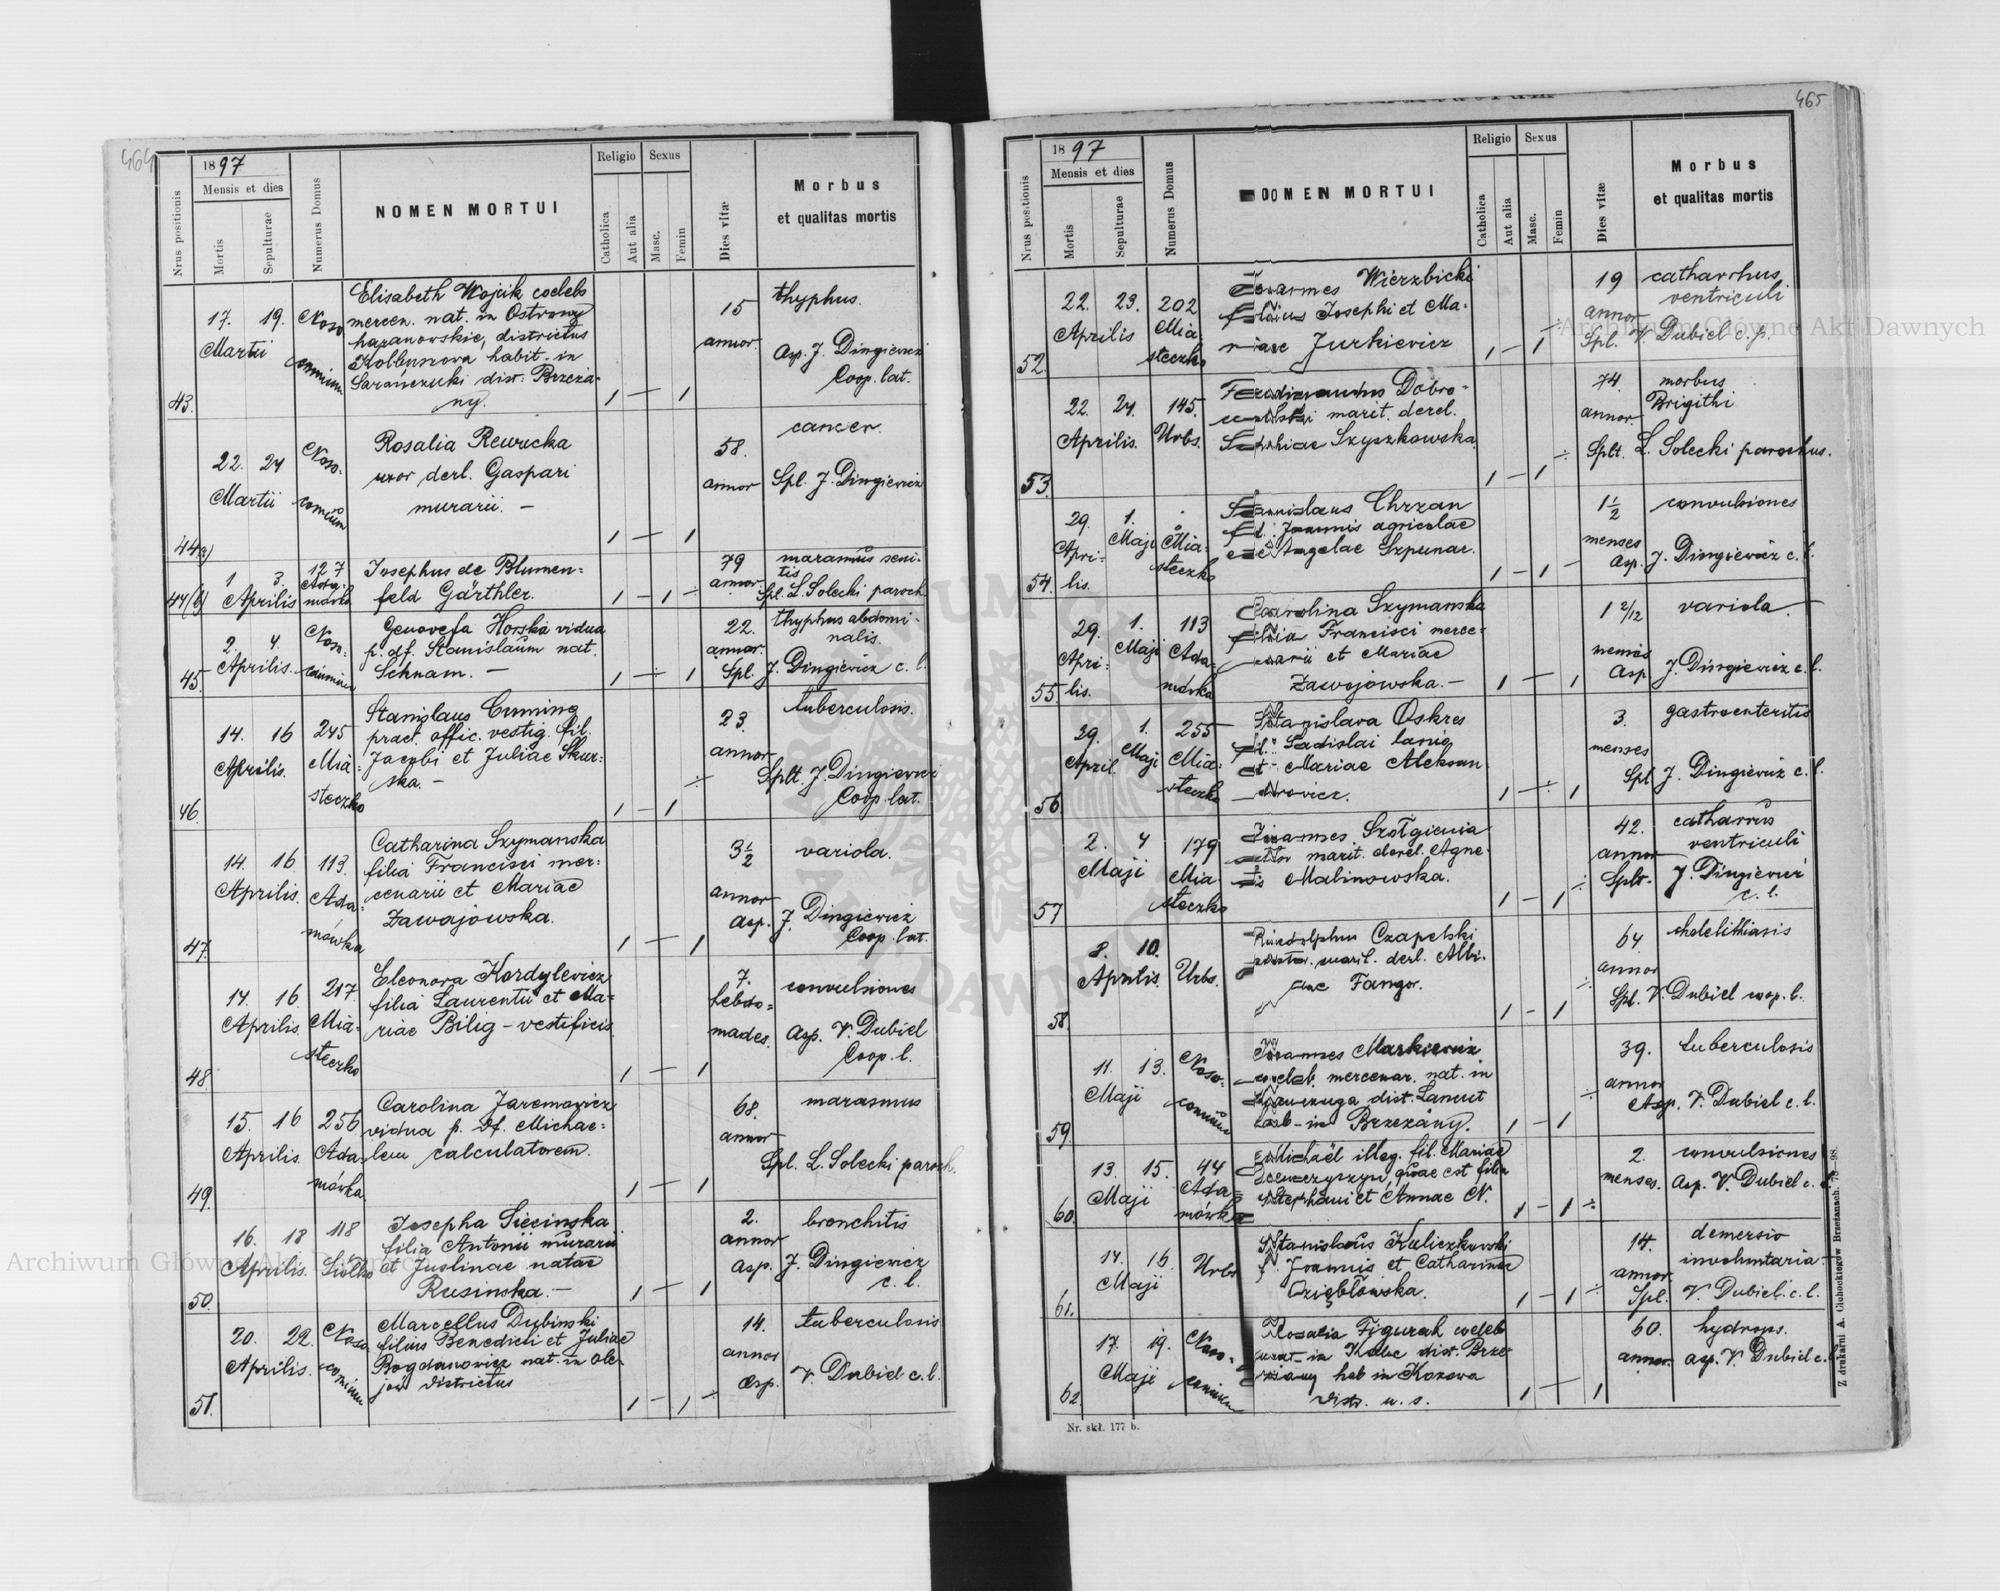 464
1897
Mensis et dies
Nrus positionis
Mortis
Sepulturae
Numerus Domus
NOMEN MORTUI
Religio
Sexus
Catholica
Aut alia
Masc.
Femin
Dies vitæ
Morbus
et qualitas mortis
43. 17. 19. Martii
Elisabeth Wojcik coelebs
mercen. nat. in Ostrowy
baranowskie, districtus
Kolbuszowa habit. in
Sarańczuki dist. Brzeża-
ny.
1 — 1
15
annor.
thyphus.
Asp. J. Dingiewicz
Coop. lat.
44a) 22. 24 Martii
Noso-
comium
Rosalia Rewucka
uxor derl. Gaspari
murarii. —
1 — 1
58.
annor
cancer.
Spl. J. Dingiewicz
44(b) 1 3. Aprilis
127
Ada-
mówka
Josephus de Blumen=
feld Gärthler.
1 — 1
79
annor.
marasmus seni-
lis
Spl. L. Solecki paroch.
45. 2. 4. Aprilis.
Genovefa Horska vidua
p. df. Stanislaum nat.
Schnam. —
22.
annor.
thyphus abdomi-
nalis.
Spl. J. Dingiewicz c. l.
46. 14. 16 Aprilis.
245
Mia-
steczko
Stanislaus Cuming
pract. offic. vestig. fil.
Jacobi et Juliae Skur-
ska. —
23.
annor
tuberculosis.
Splt. J. Dingiewicz
Coop. lat.
47. 14. 16 Aprilis.
113.
Ada-
mówka
Catharina Szymanska
filia Francisci mer=
cenarii et Mariae
Zawajówska.
3 1/2
annor
variola.
asp. J. Dingiewicz
Coop. lat.
48. 14. 16 Aprilis
217
Mia-
steczko
Eleonora Kordylewicz
filia Laurentii et Ma-
riae Bilig - vestificis.
7.
hebdo=
mades.
convulsiones
asp. V. Dubiel
Coop. l.
49. 15. 16 Aprilis.
256
Ada-
mówka
Carolina Jaremowicz
vidua p. df. Michae=
lem calculatorem.
68.
annor
marasmus
Spl. L. Solecki paroch.
50. 16. 18 Aprilis.
118
Siółko
Josepha Siecinska
filia Antonii murarii
et Justinae natae
Rusinska. —
2.
annor
bronchitis
asp. J. Dingiewicz
c. l.
51. 20. 22. Aprilis.
Marcellus Dubinski
filius Benedicti et Juliae
Bogdanowicz nat. in Ole-
jów districtus
14.
annor
tuberculosis
asp. V. Dubiel c. l.
465
1897
Mensis et dies
Nrus positionis
Mortis
Sepulturae
Numerus Domus
NOMEN MORTUI
Religio
Sexus
Catholica
Aut alia
Masc.
Femin
Dies vitæ
Morbus
et qualitas mortis
52. 22. 23. Aprilis
202
Mia-
steczko
Joannes Wierzbicki
filius Josephi et Ma-
riae Jurkiewicz
19
annor
catharrhus
ventriculi
Spl. V. Dubiel c. l.
53. 22. 24. Aprilis.
145.
Urbs.
Ferdinandus Dobro-
wolski marit. derel.
Sophiae Szyszkowska
74.
annor.
morbus
Brigithi
Splt. L. Solecki parochus.
54. 29. 1. Apri-
lis.
Maji
Mia-
steczko
Stanislaus Chrzan
fil. Joannis agricolae
et Angelae Szpunar.
1 1/2
menses
convulsiones
Asp. J. Dingiewicz c. l.
55. 29. 1. Apri-
lis.
Maji
113
Ada-
mówka
Carolina Szymanska
filia Francisci merce-
narii et Mariae
Zawojówska. —
1 2/12
variola
Asp J. Dingiewicz c. l.
56 29. 1. April.
Maji
255
Mia-
steczko
Stanislava Oskres
fil. Ladislai lanio
et Mariae Aleksan
drowicz.
3.
menses
gastroenteritis
Spl J. Dingiewicz c. l.
57 2. 4 Maji
179
Mia
steczko
Joannes Szołginia
sutor marit. derel. Agne-
tis Malinowska.
42.
annor
catharrus
ventriculi
Splt. J. Dingiewicz
c. l.
58. 8. 10. Aprilis.
Urbs.
Rudolphus Czapelski
marit. derl. Albi-
nae Fangor.
64
annor
cholelithiasis
Spl. V. Dubiel coop. l.
59. 11. 13. Maji
Noso-
comium
Joannes Markiewicz
coeleb. mercenar. nat. in
dist. Lancut
hab- in Brzeżany.
39.
annor
tuberculosis
Asp. V. Dubiel c. l.
60. 13. 15. Maji
44
Ada-
mówka
Michaël illeg. fil. Mariae
quae est filia
Stephani et Annae N.
2.
menses.
convulsiones
Asp. V. Dubiel c. l.
61. 14 16. Maji
Urbs
Stanislaus Kuliczkowski
f. Joannis et Catharinae
Oziębłowska.
14.
annor.
demersio
involuntaria -
Spl. V. Dubiel. c. l.
62. 17. 19. Maji
Rosalia Figurak coeleb
nat- in dist. Brze-
żany hab in Kozowa
distr. u. s.
60.
annor.
hydrops.
asp. V. Dubiel c. l.
Nr. skł. 177 b.
Z drukarni A. Cichockiego w Brzeżanach. 78—98.
Archiwum Główne Akt Dawnych
Archiwum Główne Akt Dawnych